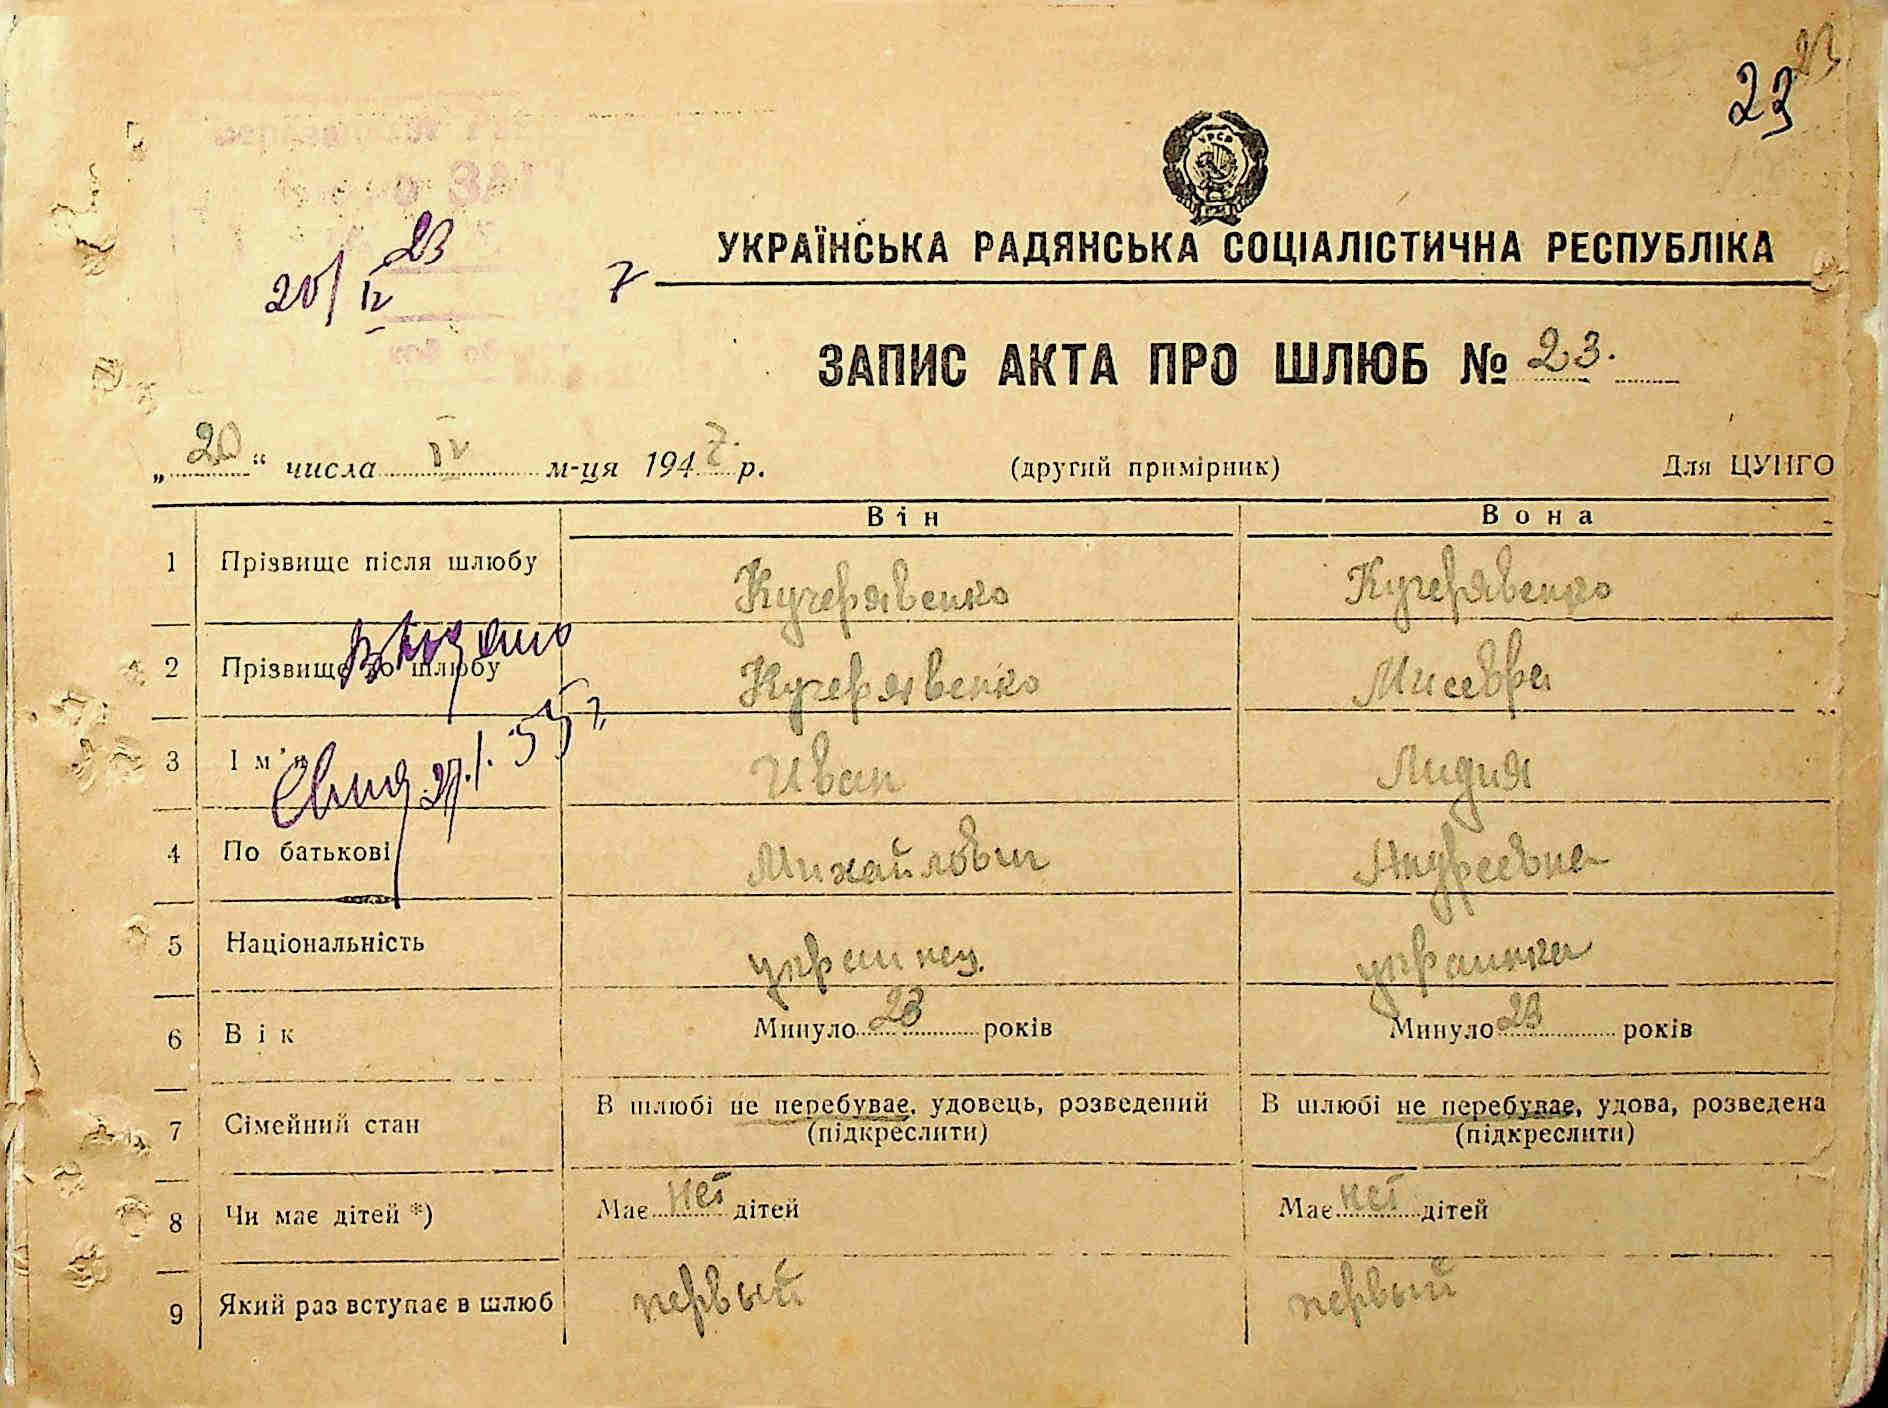 23
23
УРСР
23
20/IV 7
УКРАЇНСЬКА РАДЯНСЬКА СОЦІАЛІСТИЧНА РЕСПУБЛІКА
ЗАПИС АКТА ПРО ШЛЮБ № 23.
„20“ числа IV м-ця 1947 р. (другий примірник) Для ЦУНГО
Він Вона
1 Прізвище після шлюбу Кучерявенко Кучерявенко
2 Прізвище до шлюбу Кучерявенко Мисевра
3 Ім'я Иван Лидия
4 По батькові Михайлович Андреевна
5 Національність украинец. украинка
6 Вік Минуло 23 років Минуло 23 років
7 Сімейний стан В шлюбі не перебуває, удовець, розведений (підкреслити) В шлюбі не перебуває, удова, розведена (підкреслити)
8 Чи має дітей *) Має нет дітей Має нет дітей
9 Який раз вступає в шлюб первый первый